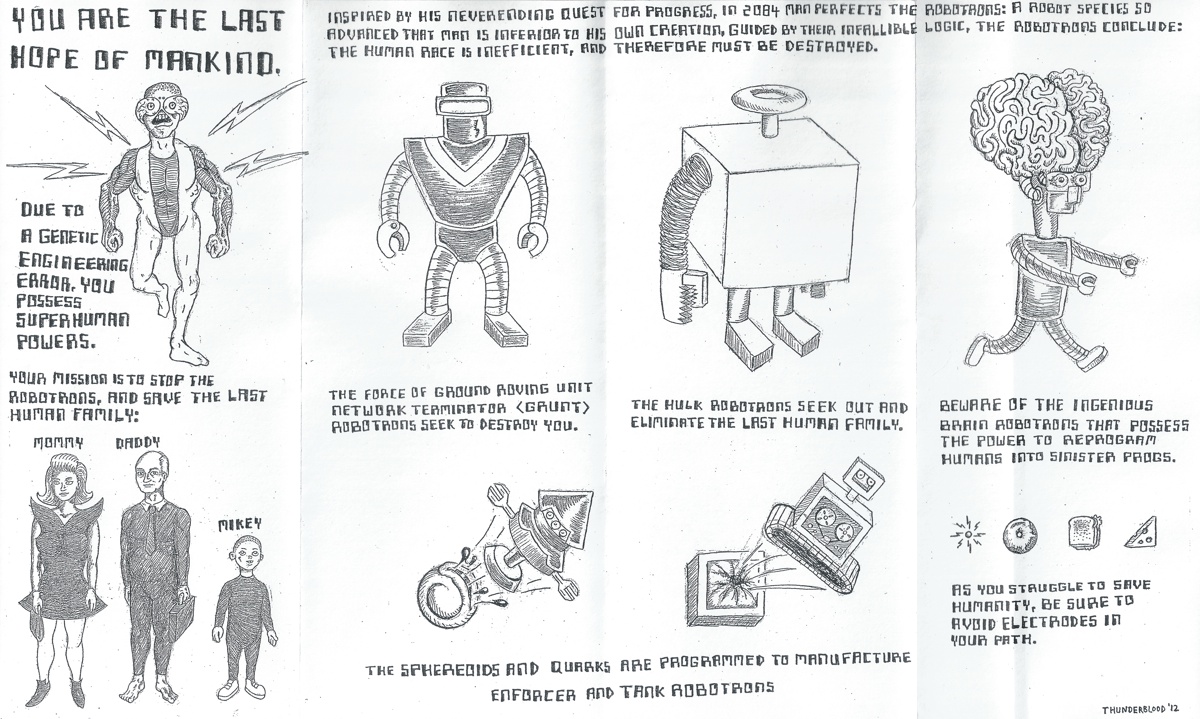 YOU ARE THE LAST
HOPE OF MANKIND.
DUE TO
A GENETIC
ENGINEERING
ERROR, YOU
POSSESS
SUPERHUMAN
POWERS.
YOUR MISSION IS TO STOP THE
ROBOTRONS, AND SAVE THE LAST
HUMAN FAMILY:
MOMMY DADDY
MIKEY
INSPIRED BY HIS NEVERENDING QUEST FOR PROGRESS, IN 2084 MAN PERFECTS THE ROBOTRONS: A ROBOT SPECIES SO
ADVANCED THAT MAN IS INFERIOR TO HIS OWN CREATION, GUIDED BY THEIR INFALLIBLE LOGIC, THE ROBOTRONS CONCLUDE:
THE HUMAN RACE IS INEFFICIENT, AND THEREFORE MUST BE DESTROYED.
THE FORCE OF GROUND ROVING UNIT
NETWORK TERMINATOR <GRUNT>
ROBOTRONS SEEK TO DESTROY YOU.
THE HULK ROBOTRONS SEEK OUT AND
ELIMINATE THE LAST HUMAN FAMILY.
BEWARE OF THE INGENIOUS
BRAIN ROBOTRONS THAT POSSESS
THE POWER TO REPROGRAM
HUMANS INTO SINISTER PROGS.
THE SPHEREOIDS AND QUARKS ARE PROGRAMMED TO MANUFACTURE
ENFORCER AND TANK ROBOTRONS
AS YOU STRUGGLE TO SAVE
HUMANITY, BE SURE TO
AVOID ELECTRODES IN
YOUR PATH.
THUNDERBLOOD '12